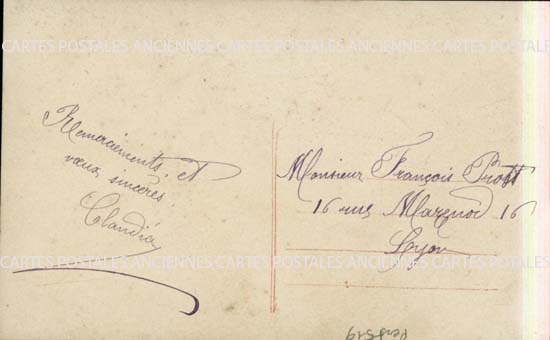 CARTES POSTALES ANCIENNES CARTES POSTALES ANCIENNES CARTES POSTALES
Remerciements et
voeux sincères.
Claudia
Monsieur François Prost
16 rue Marignod 16
Lyon
CARTES POSTALES ANCIENNES CARTES POSTALES ANCIENNES CARTES POSTALES